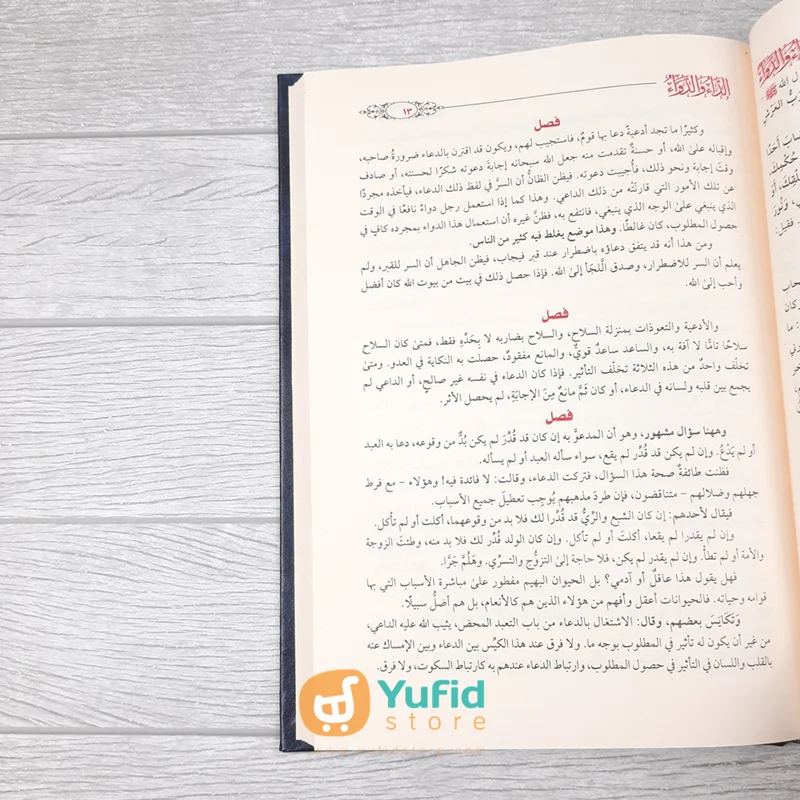 الدَّاءُ وَالدَّوَاءُ
١٣
فصل
وكثيرًا ما تجد أدعيةً دعا بها قومٌ، فاستجيب لهم، ويكون قد اقترن بالدعاء ضرورةُ صاحبه،
وإقباله علىٰ الله، أو حسنةٌ تقدمت منه جعل الله سبحانه إجابةَ دعوته شكرًا لحسنته، أو صادف
وقتَ إجابة ونحو ذلك، فأُجيبت دعوته. فيظن الظانُّ أن السرَّ في لفظ ذلك الدعاء، فيأخذه مجردًا
عن تلك الأمور التي قارنَتْه من ذلك الداعي. وهذا كما إذا استعمل رجل دواءً نافعًا في الوقت
الذي ينبغي علىٰ الوجه الذي ينبغي، فانتفع به، فظنَّ غيره أن استعمال هذا الدواء بمجرده كافٍ في
حصول المطلوب، كان غالطًا. وهذا موضع يغلط فيه كثير من الناس.
ومن هذا أنه قد يتفق دعاؤه باضطرار عند قبر فيجاب، فيظن الجاهل أن السر للقبر، ولم
يعلم أن السر للاضطرار، وصدق اللَّجَأ إلىٰ الله. فإذا حصل ذلك في بيت من بيوت الله كان أفضل
وأحب إلىٰ الله.
فصل
والأدعية والتعوذات بمنزلة السلاح، والسلاح بضاربه لا بِحَدِّهِ فقط، فمتىٰ كان السلاح
سلاحًا تامًّا لا آفة به، والساعد ساعدٌ قويٌّ، والمانع مفقودٌ، حصلت به النكاية في العدو. ومتىٰ
تخلّف واحدٌ من هذه الثلاثة تخلّف التأثير. فإذا كان الدعاء في نفسه غير صالحٍ، أو الداعي لم
يجمع بين قلبه ولسانه في الدعاء، أو كان ثَمَّ مانعٌ مِنَ الإجابَةِ، لم يحصل الأثر.
فصل
وههنا سؤال مشهور، وهو أن المدعوَّ به إن كان قد قُدِّرَ لم يكن بُدٌّ من وقوعه، دعا به العبد
أو لم يَدْعُ. وإن لم يكن قد قُدِّر لم يقع، سواء سأله العبد أو لم يسأله.
فظنت طائفةٌ صحة هذا السؤال، فتركت الدعاء، وقالت: لا فائدة فيه! وهؤلاء – مع فرط
جهلهم وضلالهم – متناقضون، فإن طردَ مذهبهم يُوجِب تعطيلَ جميع الأسباب.
فيقال لأحدهم: إن كان الشبع والرِّيُّ قد قُدِّرا لك فلا بد من وقوعهما، أكلت أو لم تأكل.
وإن لم يقدرا لم يقعا، أكلتَ أو لم تأكل. وإن كان الولد قُدِّر لك فلا بد منه، وطئتَ الزوجة
والأمة أو لم تطأ. وإن لم يقدر لم يكن، فلا حاجة إلىٰ التزوُّج والتسرِّي. وهَلُمَّ جَرًّا.
فهل يقول هذا عاقلٌ أو آدمي؟ بل الحيوان البهيم مفطور علىٰ مباشرة الأسباب التي بها
قوامه وحياته. فالحيوانات أعقل وأفهم من هؤلاء الذين هم كالأنعام، بل هم أضلُّ سبيلًا.
وَتَكايَسَ بعضهم، وقال: الاشتغال بالدعاء من باب التعبد المحض، يثيب الله عليه الداعي،
من غير أن يكون له تأثير في المطلوب بوجه ما. ولا فرق عند هذا الكيِّس بين الدعاء وبين الإمساك عنه
بالقلب واللسان في التأثير في حصول المطلوب، وارتباط الدعاء عندهم به كارتباط السكوت، ولا فرق.
Yufid
store
www.yufidstore.com